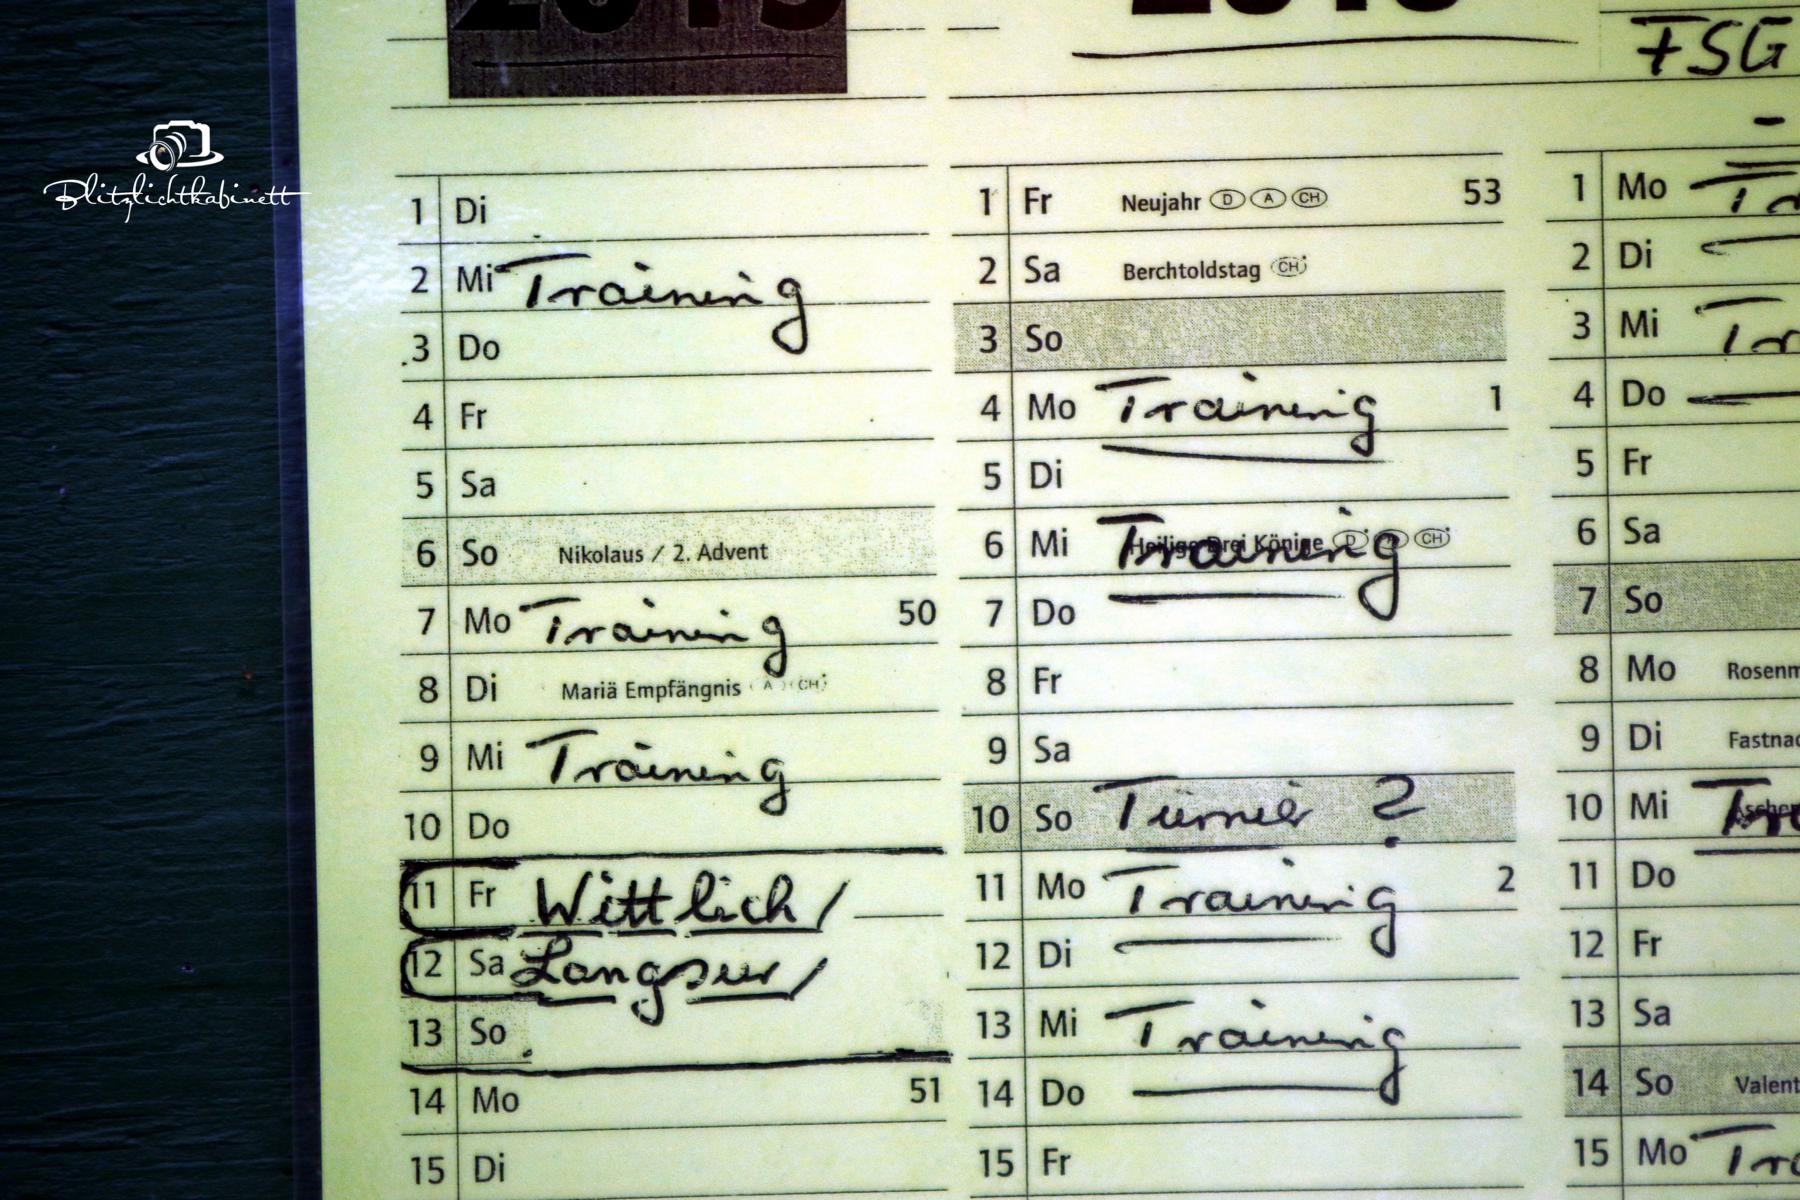 2015
2016
FSG
Blitzlichtkabinett
1 Di
2 Mi Training
3 Do
4 Fr
5 Sa
6 So Nikolaus / 2. Advent
7 Mo Training 50
8 Di Mariä Empfängnis A CH
9 Mi Training
10 Do
11 Fr Wittlich/
12 Sa Langsur/
13 So
14 Mo 51
15 Di
1 Fr Neujahr D A CH 53
2 Sa Berchtoldstag CH
3 So
4 Mo Training 1
5 Di
6 Mi Heilige Drei Könige D A CH Training
7 Do
8 Fr
9 Sa
10 So Turnier ?
11 Mo Training 2
12 Di
13 Mi Training
14 Do
15 Fr
1 Mo
2 Di
3 Mi
4 Do
5 Fr
6 Sa
7 So
8 Mo Rosenm
9 Di Fastnac
10 Mi
11 Do
12 Fr
13 Sa
14 So Valent
15 Mo